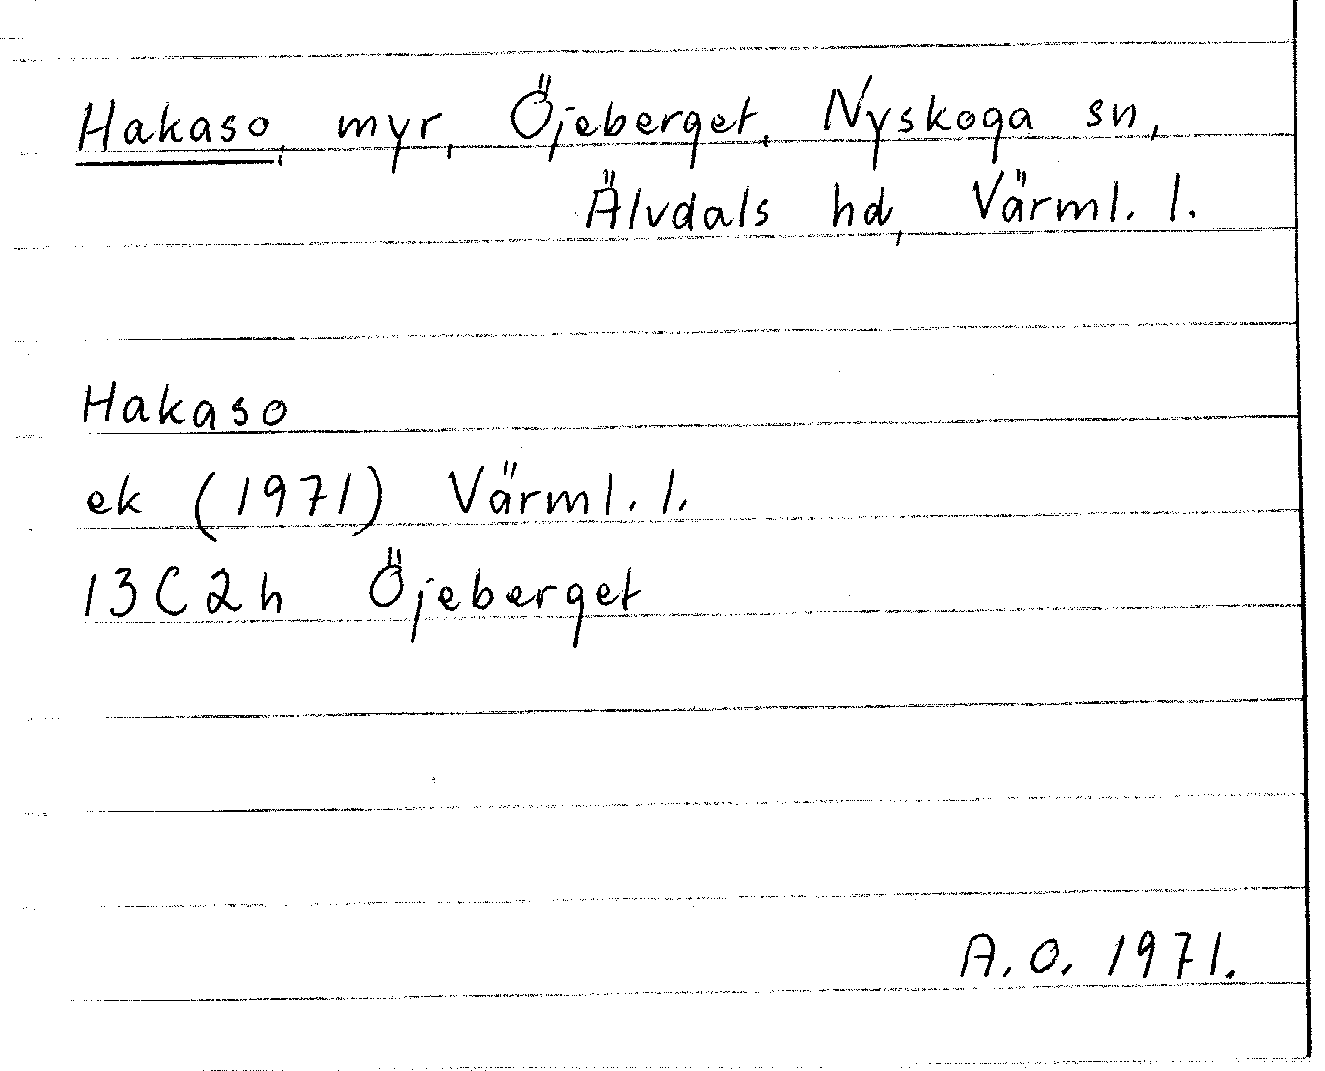 Hakaso, myr, Öjeberget, Nyskoga sn,
Älvdals hd, Värml. l.
Hakaso
ek (1971) Värml. l.
13C2h Öjeberget
A.O. 1971.